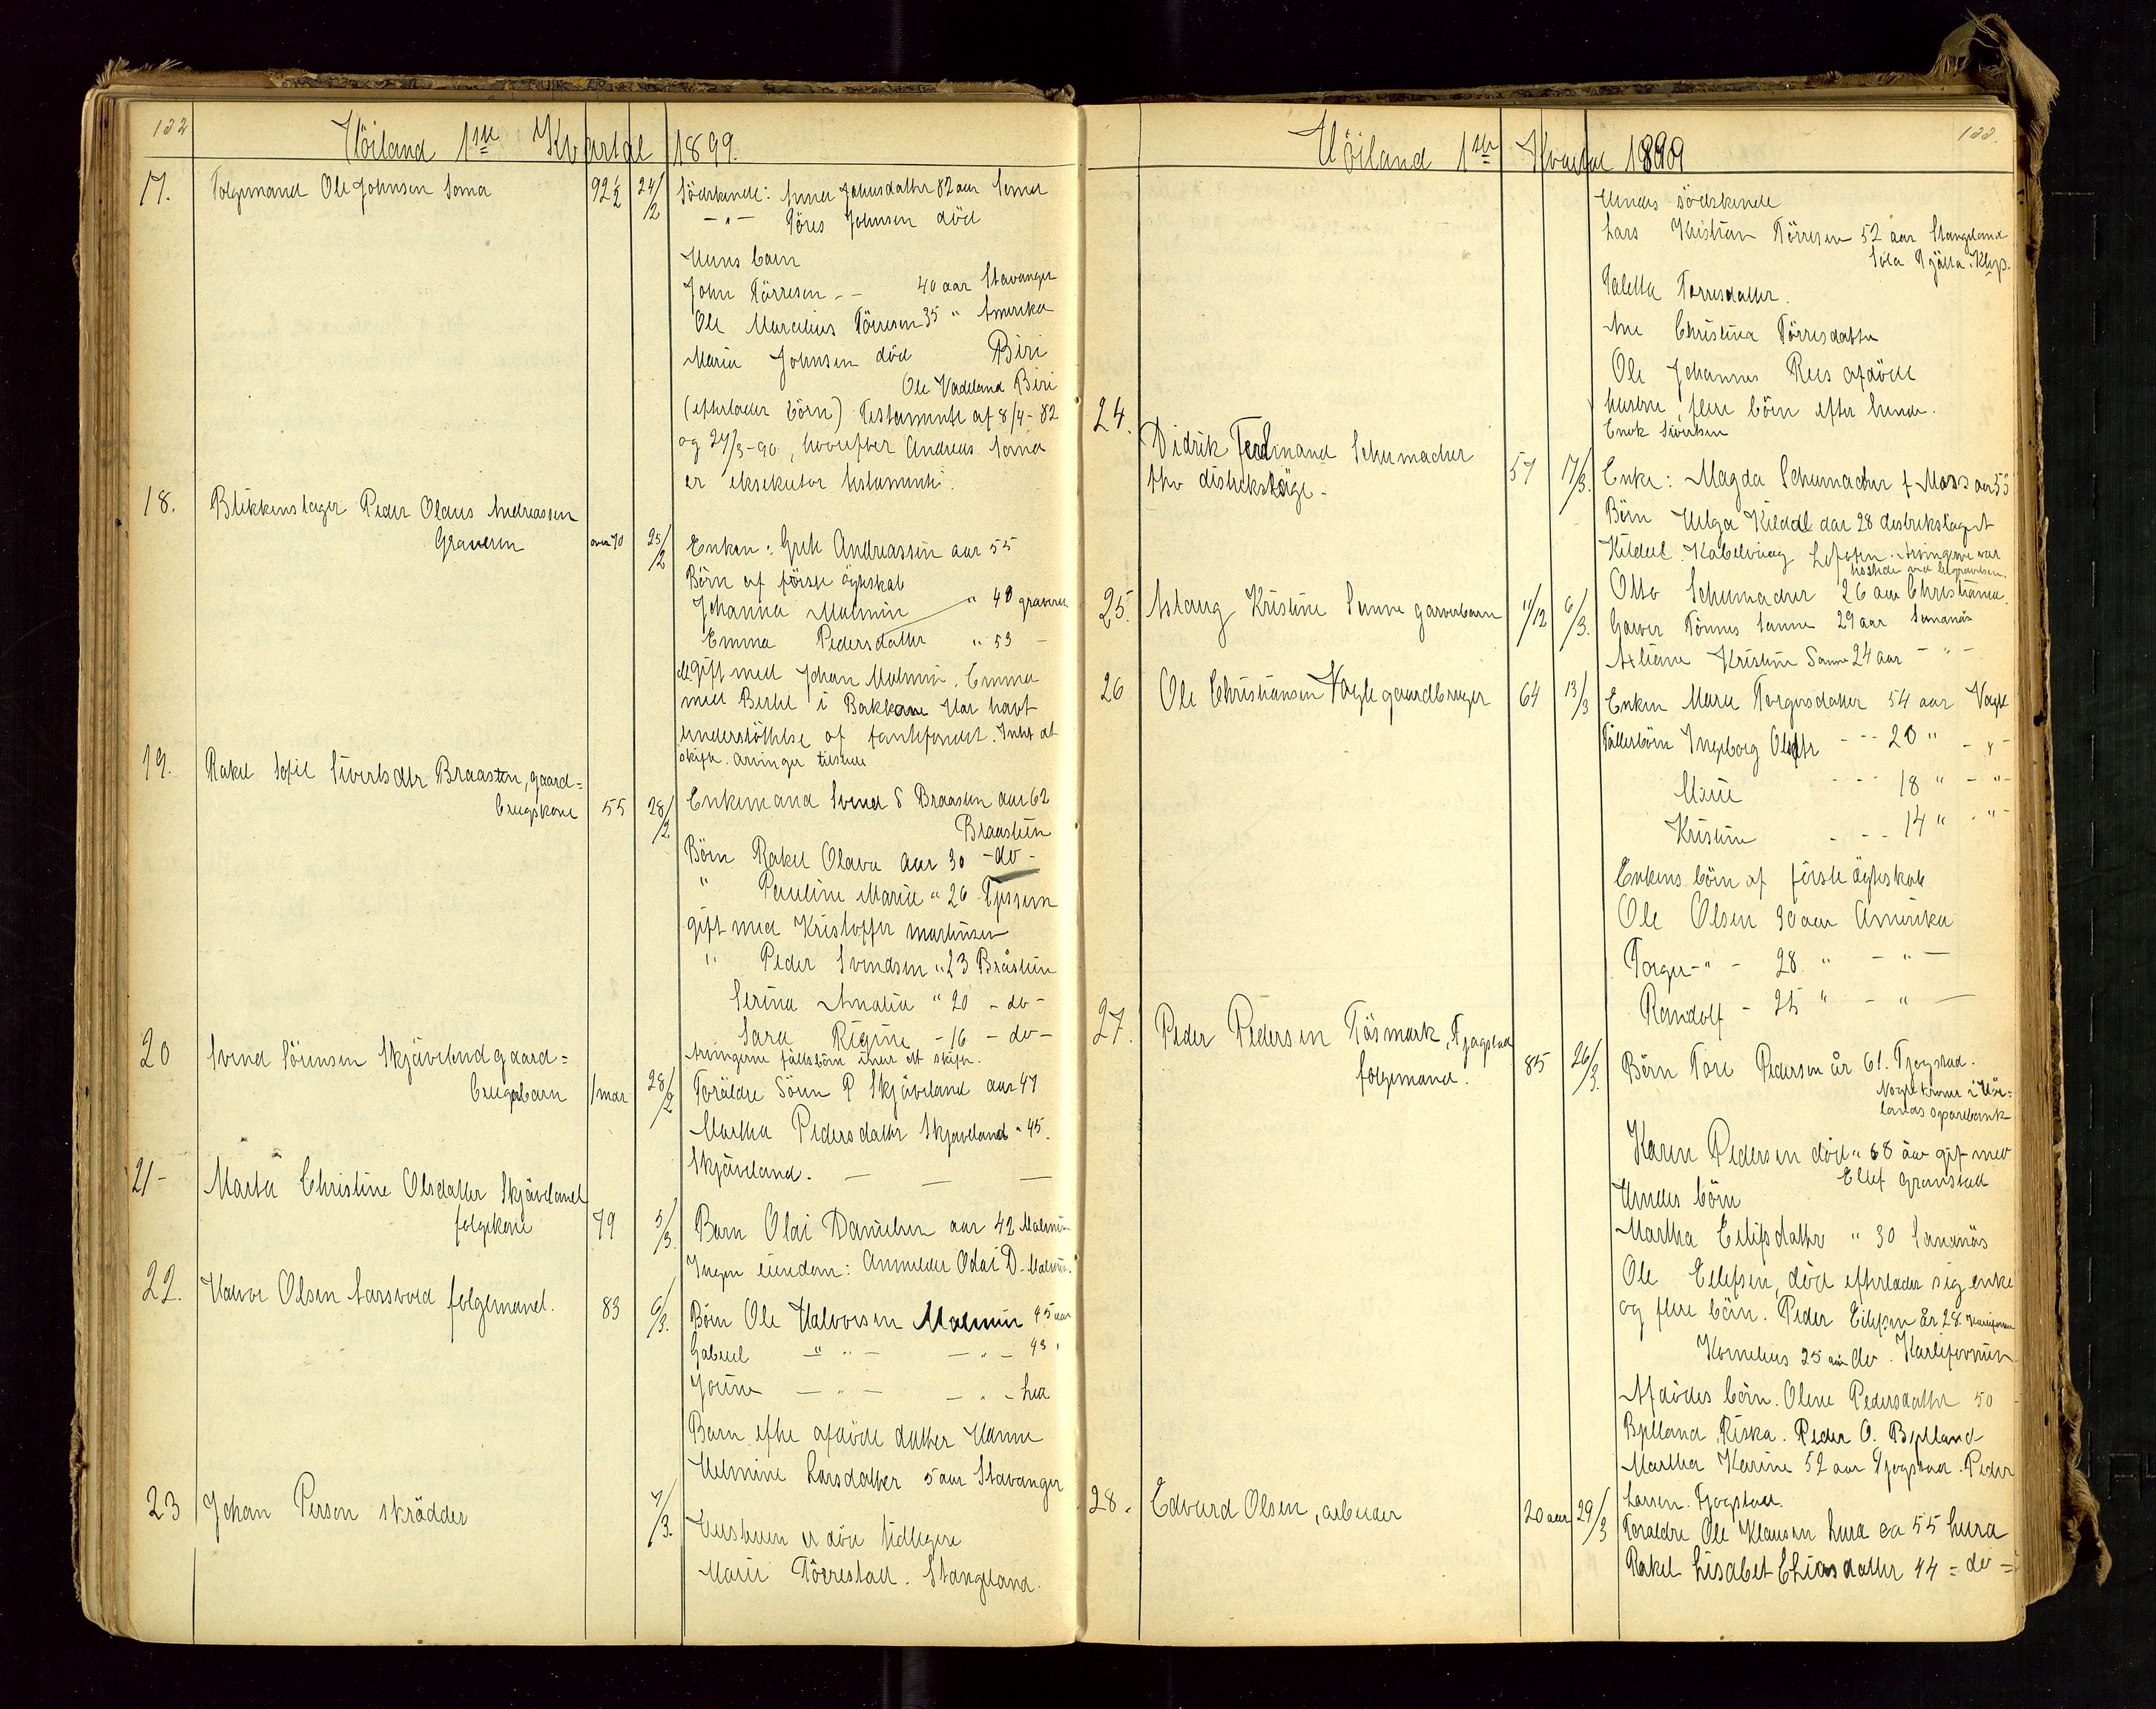 132
Höiland 1ste Kvartal 1899.
17. Folgemand Ole Johnsen Soma 92½ 24/2 Södskende: Anna Johnsdatter 82 aar Soma
– " – Töres Johnsen död
Hans barn
John Törresen – – 40 aar Stavanger
Ole Marcelius Törresen 35 " Amerika
Maria Johnsen död Biri
Ole Vadeland Biri
(efterlader börn) Testamente af 8/4 - 82
og 27/3 - 90, hvorefter Andreas Soma
er eksekutor testamenti.
18. Blikkenslager Peder Olaus Andreassen
Graveren over 70 25/2 Enken: Grete Andreassen aar 55
Börn af förste ägteskab
Johanna Malmin " 40 graveren
Emma Pedersdatter " 53 –
gift med Johan Malmin, Emma
med Bertel i Bakkene Har havt
understöttelse af fattikfondet. Intet at
skifte. arvinger tilstede
19. Rakel Sofie Sivertsdtr Braasten, gaard=
brugskone 55 28/2 Enkemand Svend S Braasten aar 62
Braastein
Börn Rakel Olava aar 30 – do –
" Pauline Marie " 26 Tjessem
gift med Kristoffer Martinsen
" Peder Svendsen " 23 Bråstein
Serina Amalia " 20 – do –
Sara Regine – 16 – do –
Arvingerne fällesbörn intet at skifte.
20 Svend Sörensen Skjäveland gaard=
brugsbarn 1 mdr 28/2 Foräldre Sören P Skjäveland aar 47
Martha Pedersdatter Skjäveland " 45.
Skjäveland. — — —
21 – Marta Christine Olsdatter Skjäveland
folgekone 79 5/3. Barn Olai Danielsen aar 42 Malmin
Ingen eiendom: Anmelder Odai D. Malmin.
22. Halvor Olsen Aarsvold folgemand. 83 6/3. Börn Ole Halvorsen Malmin 45 aar
Gabriel – " – " – – " – 43 "
Jorine – " – – " – Lea
Barn efter afdöde datter Hanne
Helmine Larsdatter 5 aar Stavanger
23 Johan Person skrädder 7/3. Hustruen er död tidligere
Marie Törrestad. Stangeland.
133.
Höiland 1ste Kvartal 1899
Hendes södskende
Lars Kristian Törresen 52 aar Stangeland
Sola Tjötta. Klep.
Taletta Torresdatter.
Ane Christina Törresdatter
Ole Johannes Rees afdöde
hustru, flere börn efter hende.
Enok Sivertsen
24. Didrik Ferdinand Schumacher
fhv distriktsläge – 57 17/3. Enke: Magda Schumacher f. Moss aar 53
Börn Helga Kildal aar 28 distriktslaget
Kildal Kabelvaag Lofoten. Arvingerne var
tilstede ved begravelsen.
Otto Schumacher 26 aar Christiania.
25. Aslaug Kristine Sanne garverbarn 11/12 6/3. Garver Tönnes Sanne 29 aar Sandnäs
Axliane Kristine Sanne 24 aar – " –
26 Ole Christiansen Vagle gaardbruger 64 13/3 Enken Maren Torgersdatter 54 aar Vagle
Fällesbörn Ingeborg Olsdtr – – 20 " – " –
Marie – – – 18 " – " –
Kristine – – – 14 " – " –
Enkens börn af förste ägteskab
Ole Olsen 30 aar Amerika
Torger – " – 28 " – " –
Randolf – 25 " – " –
27. Peder Pedersen Täsmark, Tjogstad
folgemand. 85 26/3. Börn Tore Pedersen år 61. Tjogstad.
Nogle kroner i Höi=
lands sparebank
Karen Pedersen död " 68 år gift med
Ellef Granstad
Hendes börn
Martha Eilifsdatter " 30 Sandnäs
Ole Eilefsen, död efterlader sig enke
og flere börn. Peder Eilefsen år 28. Kalifornien
Kornelius 25 aar do. Karlifornien
Afdödes börn. Olene Pedersdatter 50
Bylland Riska. Peder O. Bylland
Martha Karine 52 aar Tjogstad. Peder
Larsen. Tjogstad.
28. Edvard Olsen, arbeider 20 aar 29/3 Foraldre Ole Klausen Lura ca 55 Lura
Rakel Lisabet Eliasdatter 44 = do =